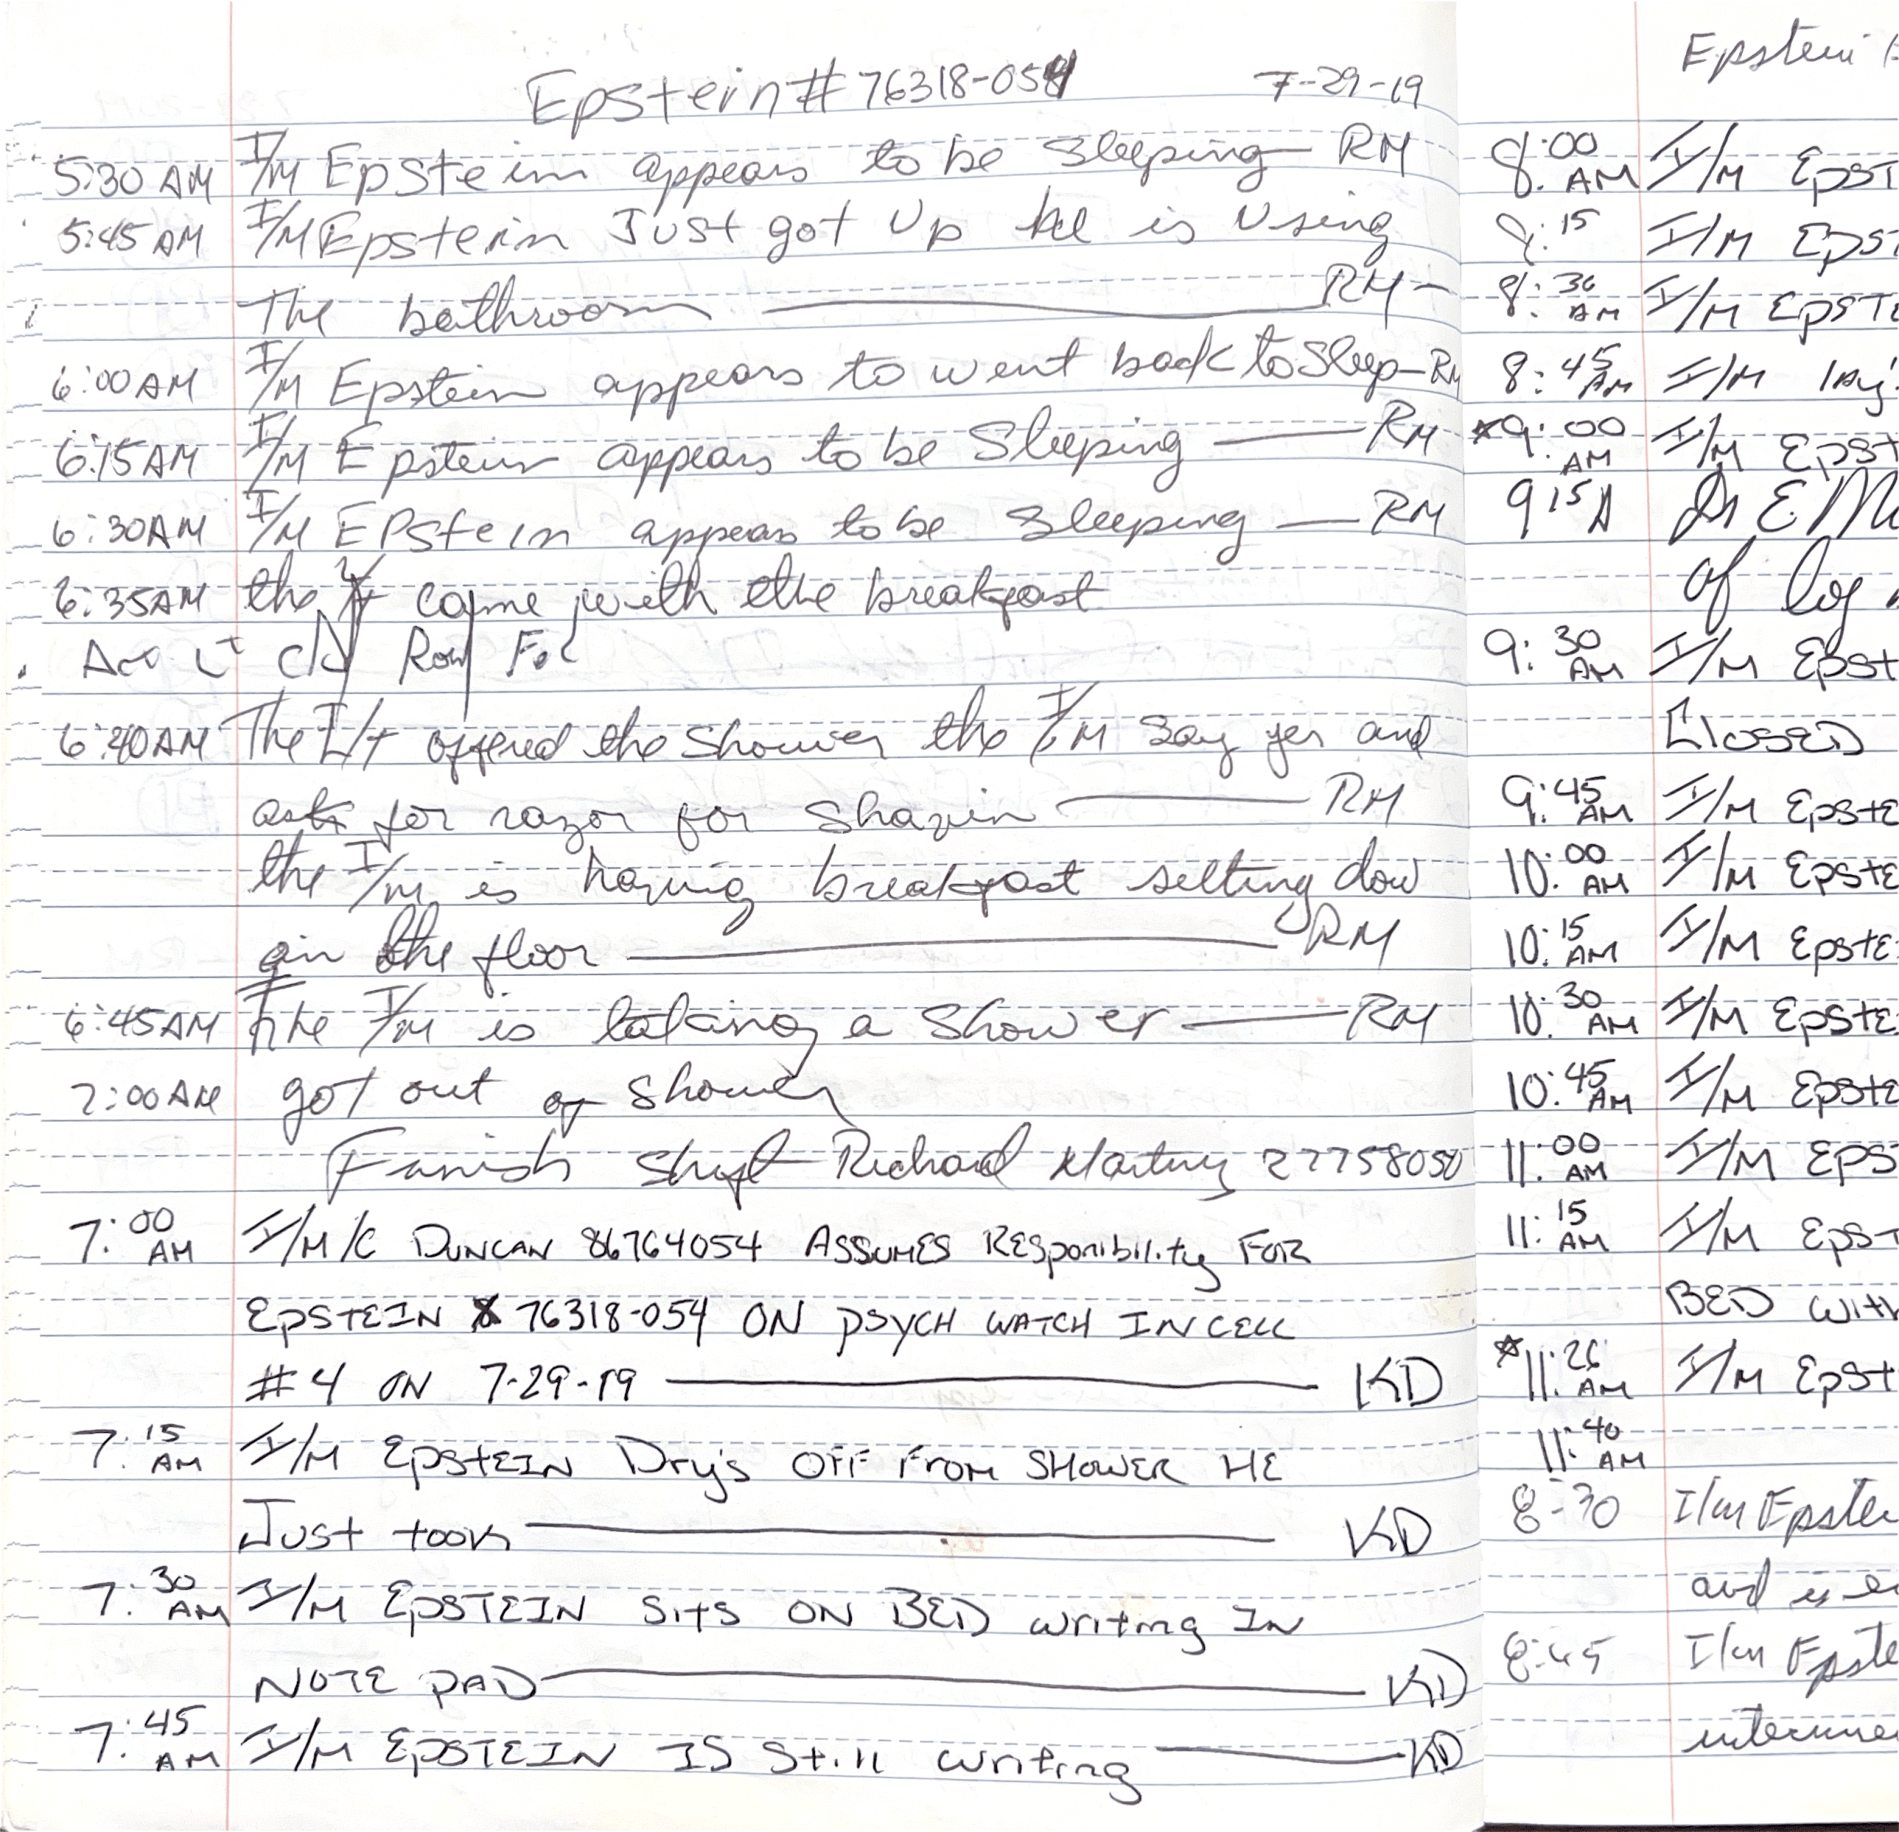 Epstein # 76318-054 7-29-19
5:30 AM I/M Epstein appears to be Sleeping RM
5:45 AM I/M Epstein Just got Up he is Using
The bathroom RM
6:00 AM I/M Epstein appears to went back to Sleep RM
6:15 AM I/M Epstein appears to be Sleeping RM
6:30 AM I/M Epstein appears to be Sleeping RM
6:35 AM the came with the breakfast
6:40 AM The L/t offered the shower the I/M say yes and
ask for razor for Shavin RM
the I/M is having breakfast setting dow
in the floor RM
6:45 AM The I/M is taking a Shower RM
7:00 AM got out of Shower
Finish Shift Richard 27758050
7:00 AM I/M/C DUNCAN 86764054 ASSUMES RESponibility FOR
EPSTEIN 76318-054 ON PSYCH WATCH IN CELL
#4 ON 7-29-19 KD
7:15 AM I/M EpstEIN Dry's OFF FROM SHOWER HE
Just took KD
7:30 AM I/M EpSTEIN sits ON BED writing IN
NOTE PAD KD
7:45 AM I/M EpSTEIN IS Still writing KD
Epstein
8:00 AM I/M EpST
8:15 I/M EpST
8:30 AM I/M EpSTE
8:45 AM I/M lay
9:00 AM I/M Epst
9 15 A Dr E. M
of log
9:30 AM I/M Epst
Closed
9:45 AM I/M Epste
10:00 AM I/M Epste
10:15 AM I/M Epste
10:30 AM I/M Epste
10:45 AM I/M Epste
11:00 AM I/M Eps
11:15 AM I/M Epst
BED with
11:26 AM I/M Epst
11:40 AM
8:30 I/M Epstei
and is
8:45 I/M Epste